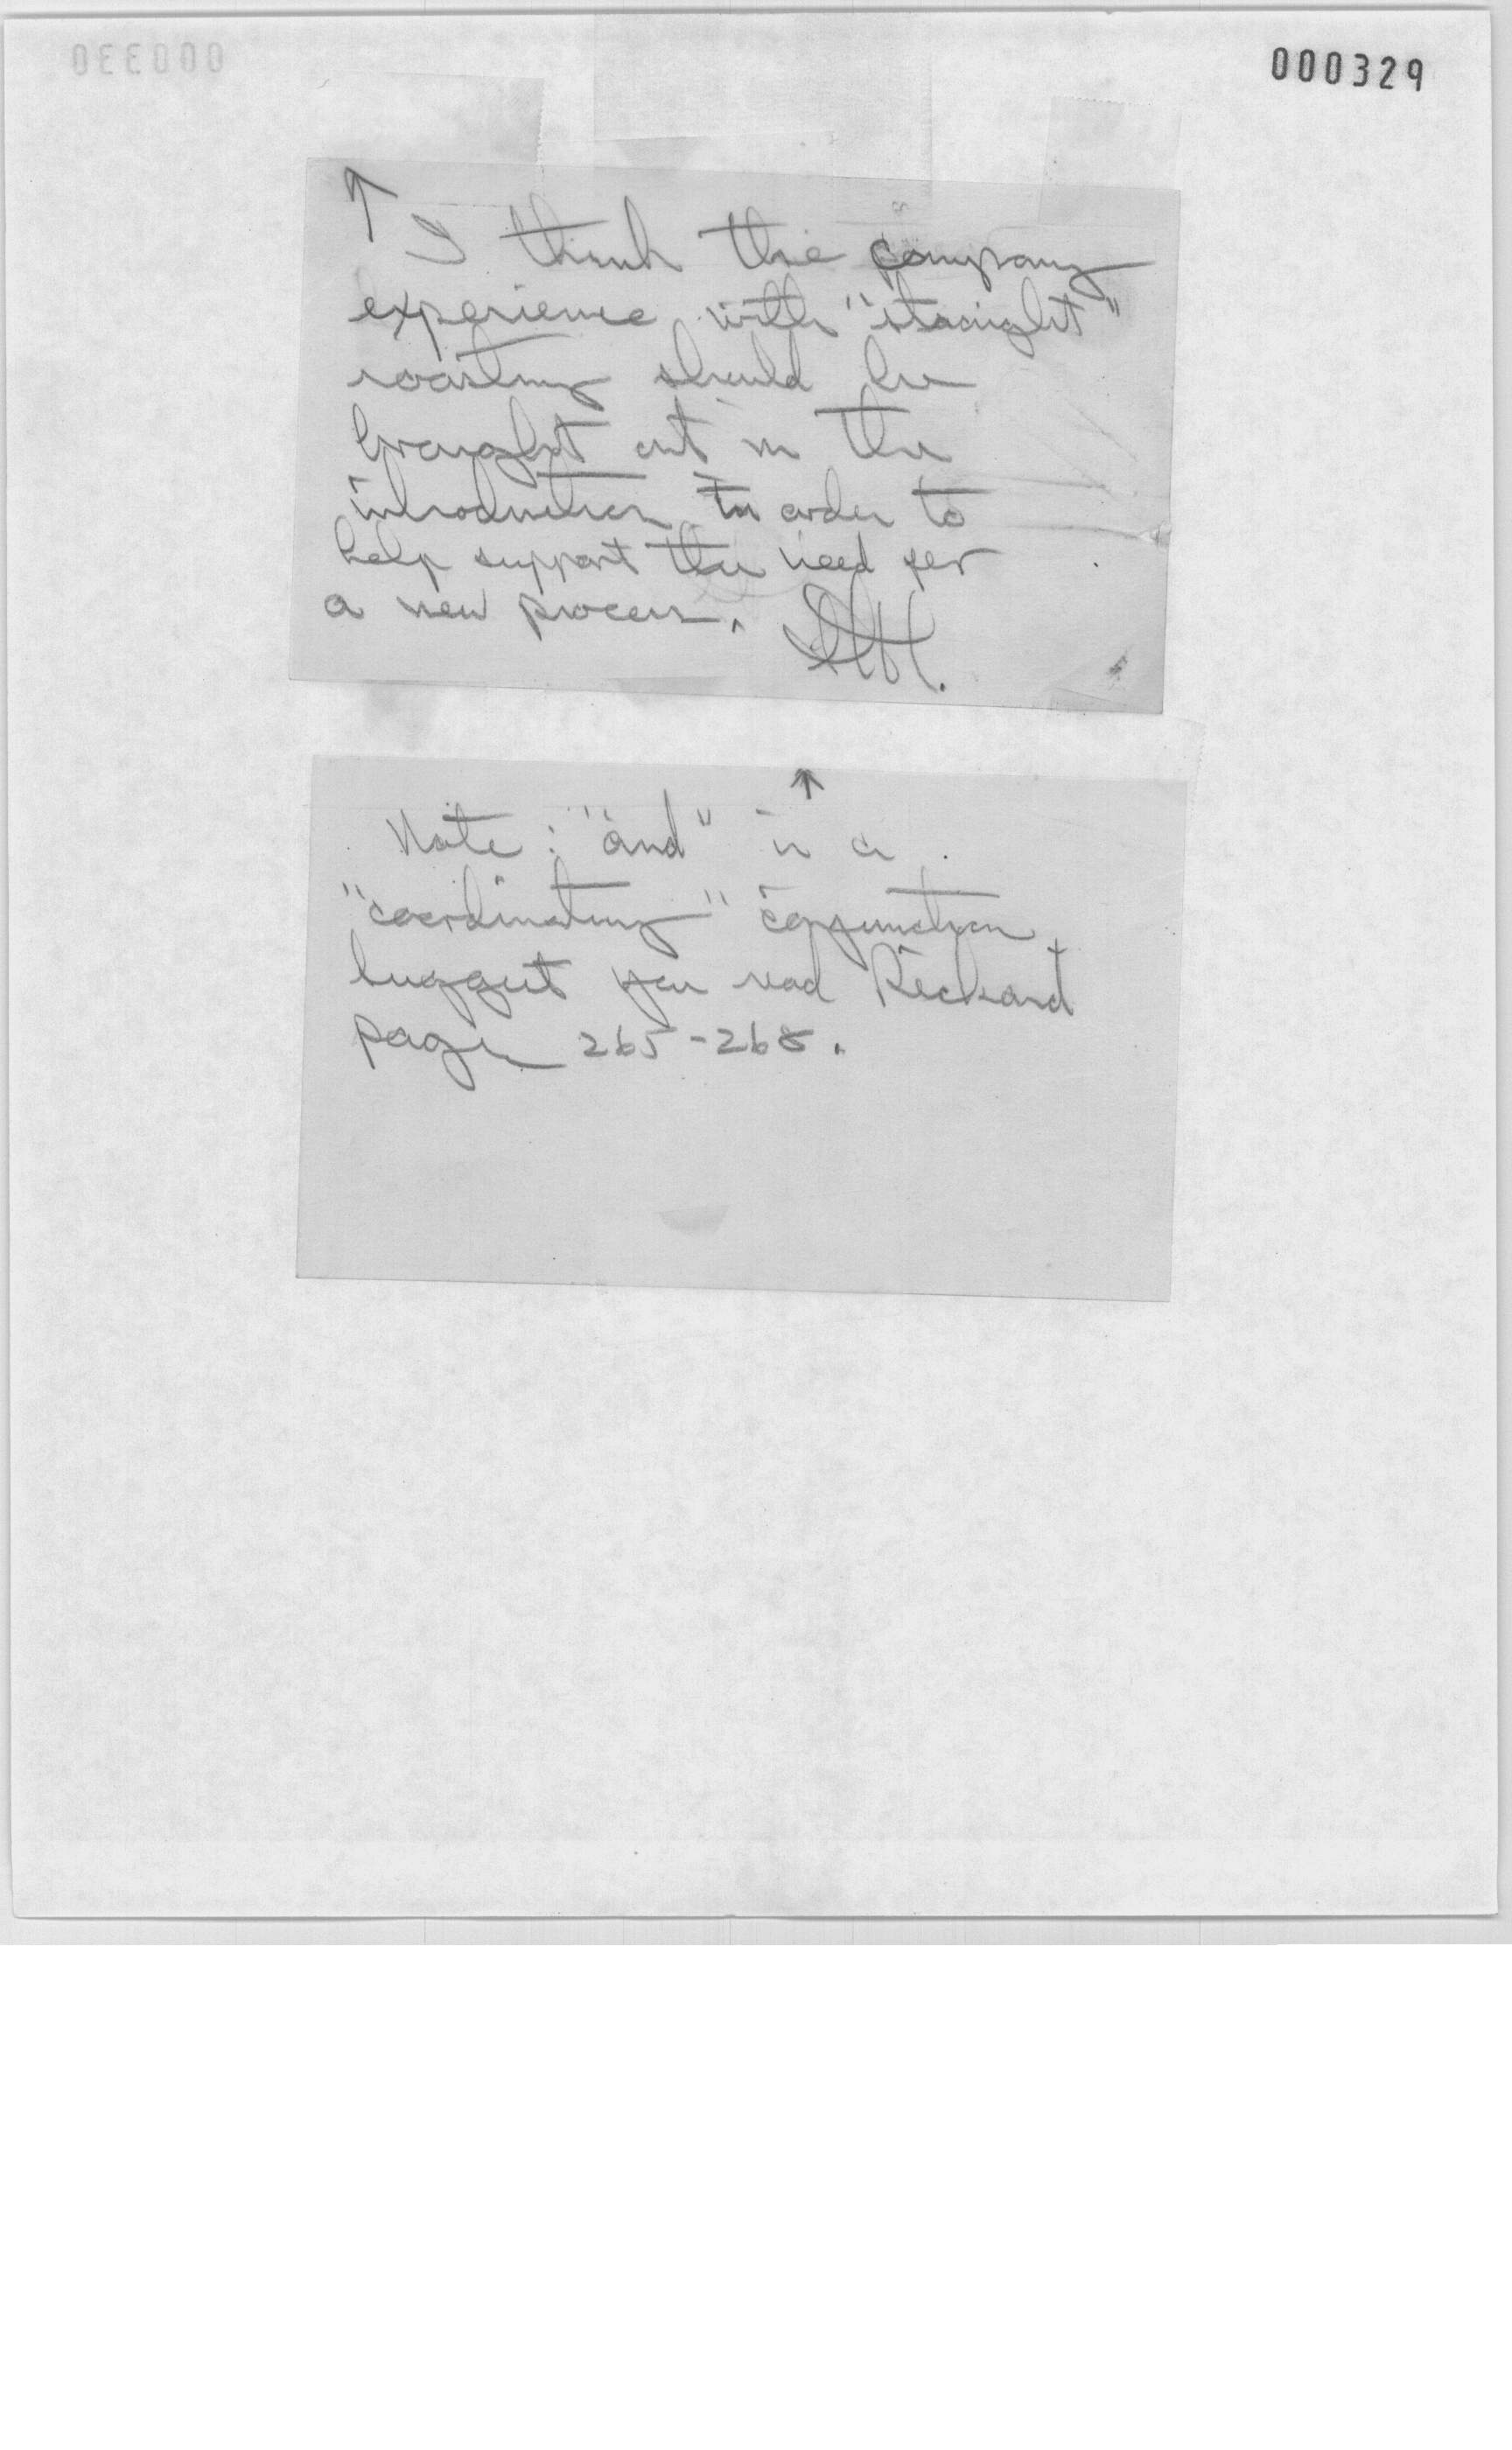 000329
↑ I think the company
experience with "straight"
roasting should be
brought out in the
introduction in order to
help support the need for
a new process.
↑
Note: "and" is a
"coordinating" conjunction
suggest you read Rickard
page 265-268.